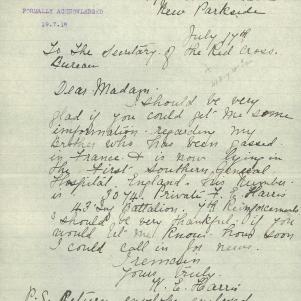 New Parkside
FORMALLY ACKNOWLEDGED
19.7.18
July 17th
To The Secretary of the Red Cross.
Bureau
Dear Madam.
I should be very
glad if you could get me some
imformation regarding my
Brother who has been gassed
in France & is now lying in
the First Southern General
Hospital England. His Number
is 3074 Private E Harris
43rd Battalion. 7th Reinforcements
I should be very thankful if you
would let me know how soon
I could call in for news.
I remain
Yours truly.
E. Harris
P.S. Return envelope enclosed